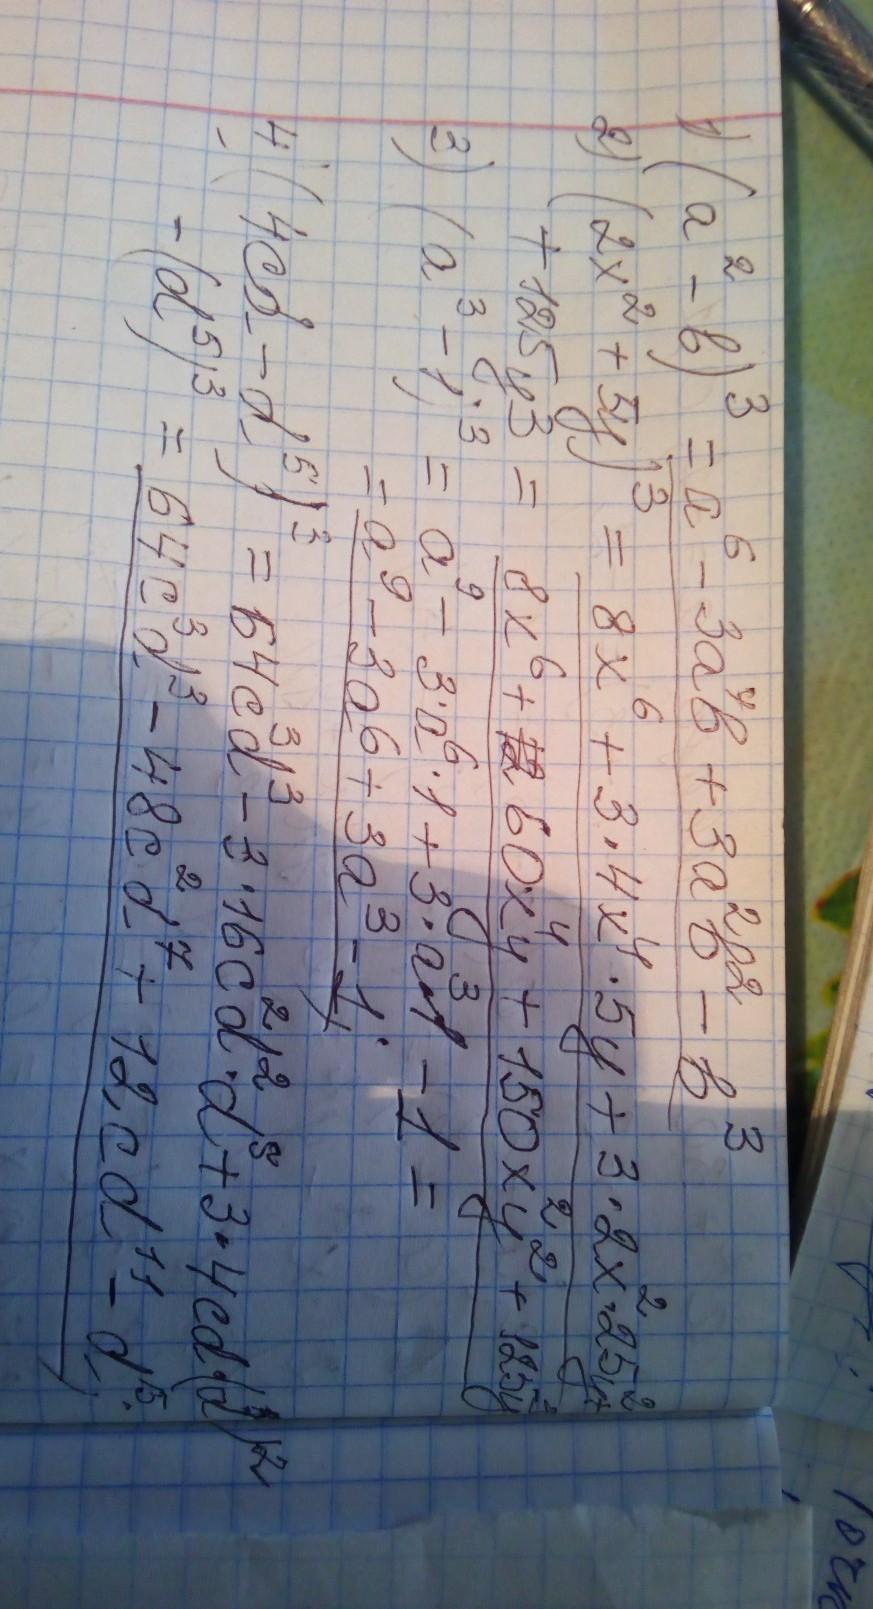 1) (a² - b)³ = a⁶ - 3a⁴b + 3a²b² - b³
2) (2x² + 5y)³ = 8x⁶ + 3·4x⁴·5y + 3·2x²·25y²+
+ 125y³ = 8x⁶ + 60x⁴y + 150x²y² + 125y³
3) (a³ - 1)³ = a⁹ - 3·a⁶·1 + 3·a³·1 - 1 =
= a⁹ - 3a⁶ + 3a³ - 1.
4) (4cd - d⁵)³ = 64c³d³ - 3·16c²d²·d⁵ + 3·4cd(d⁵)² -
- (d⁵)³ = 64c³d³ - 48c²d⁷ + 12cd¹¹ - d¹⁵.